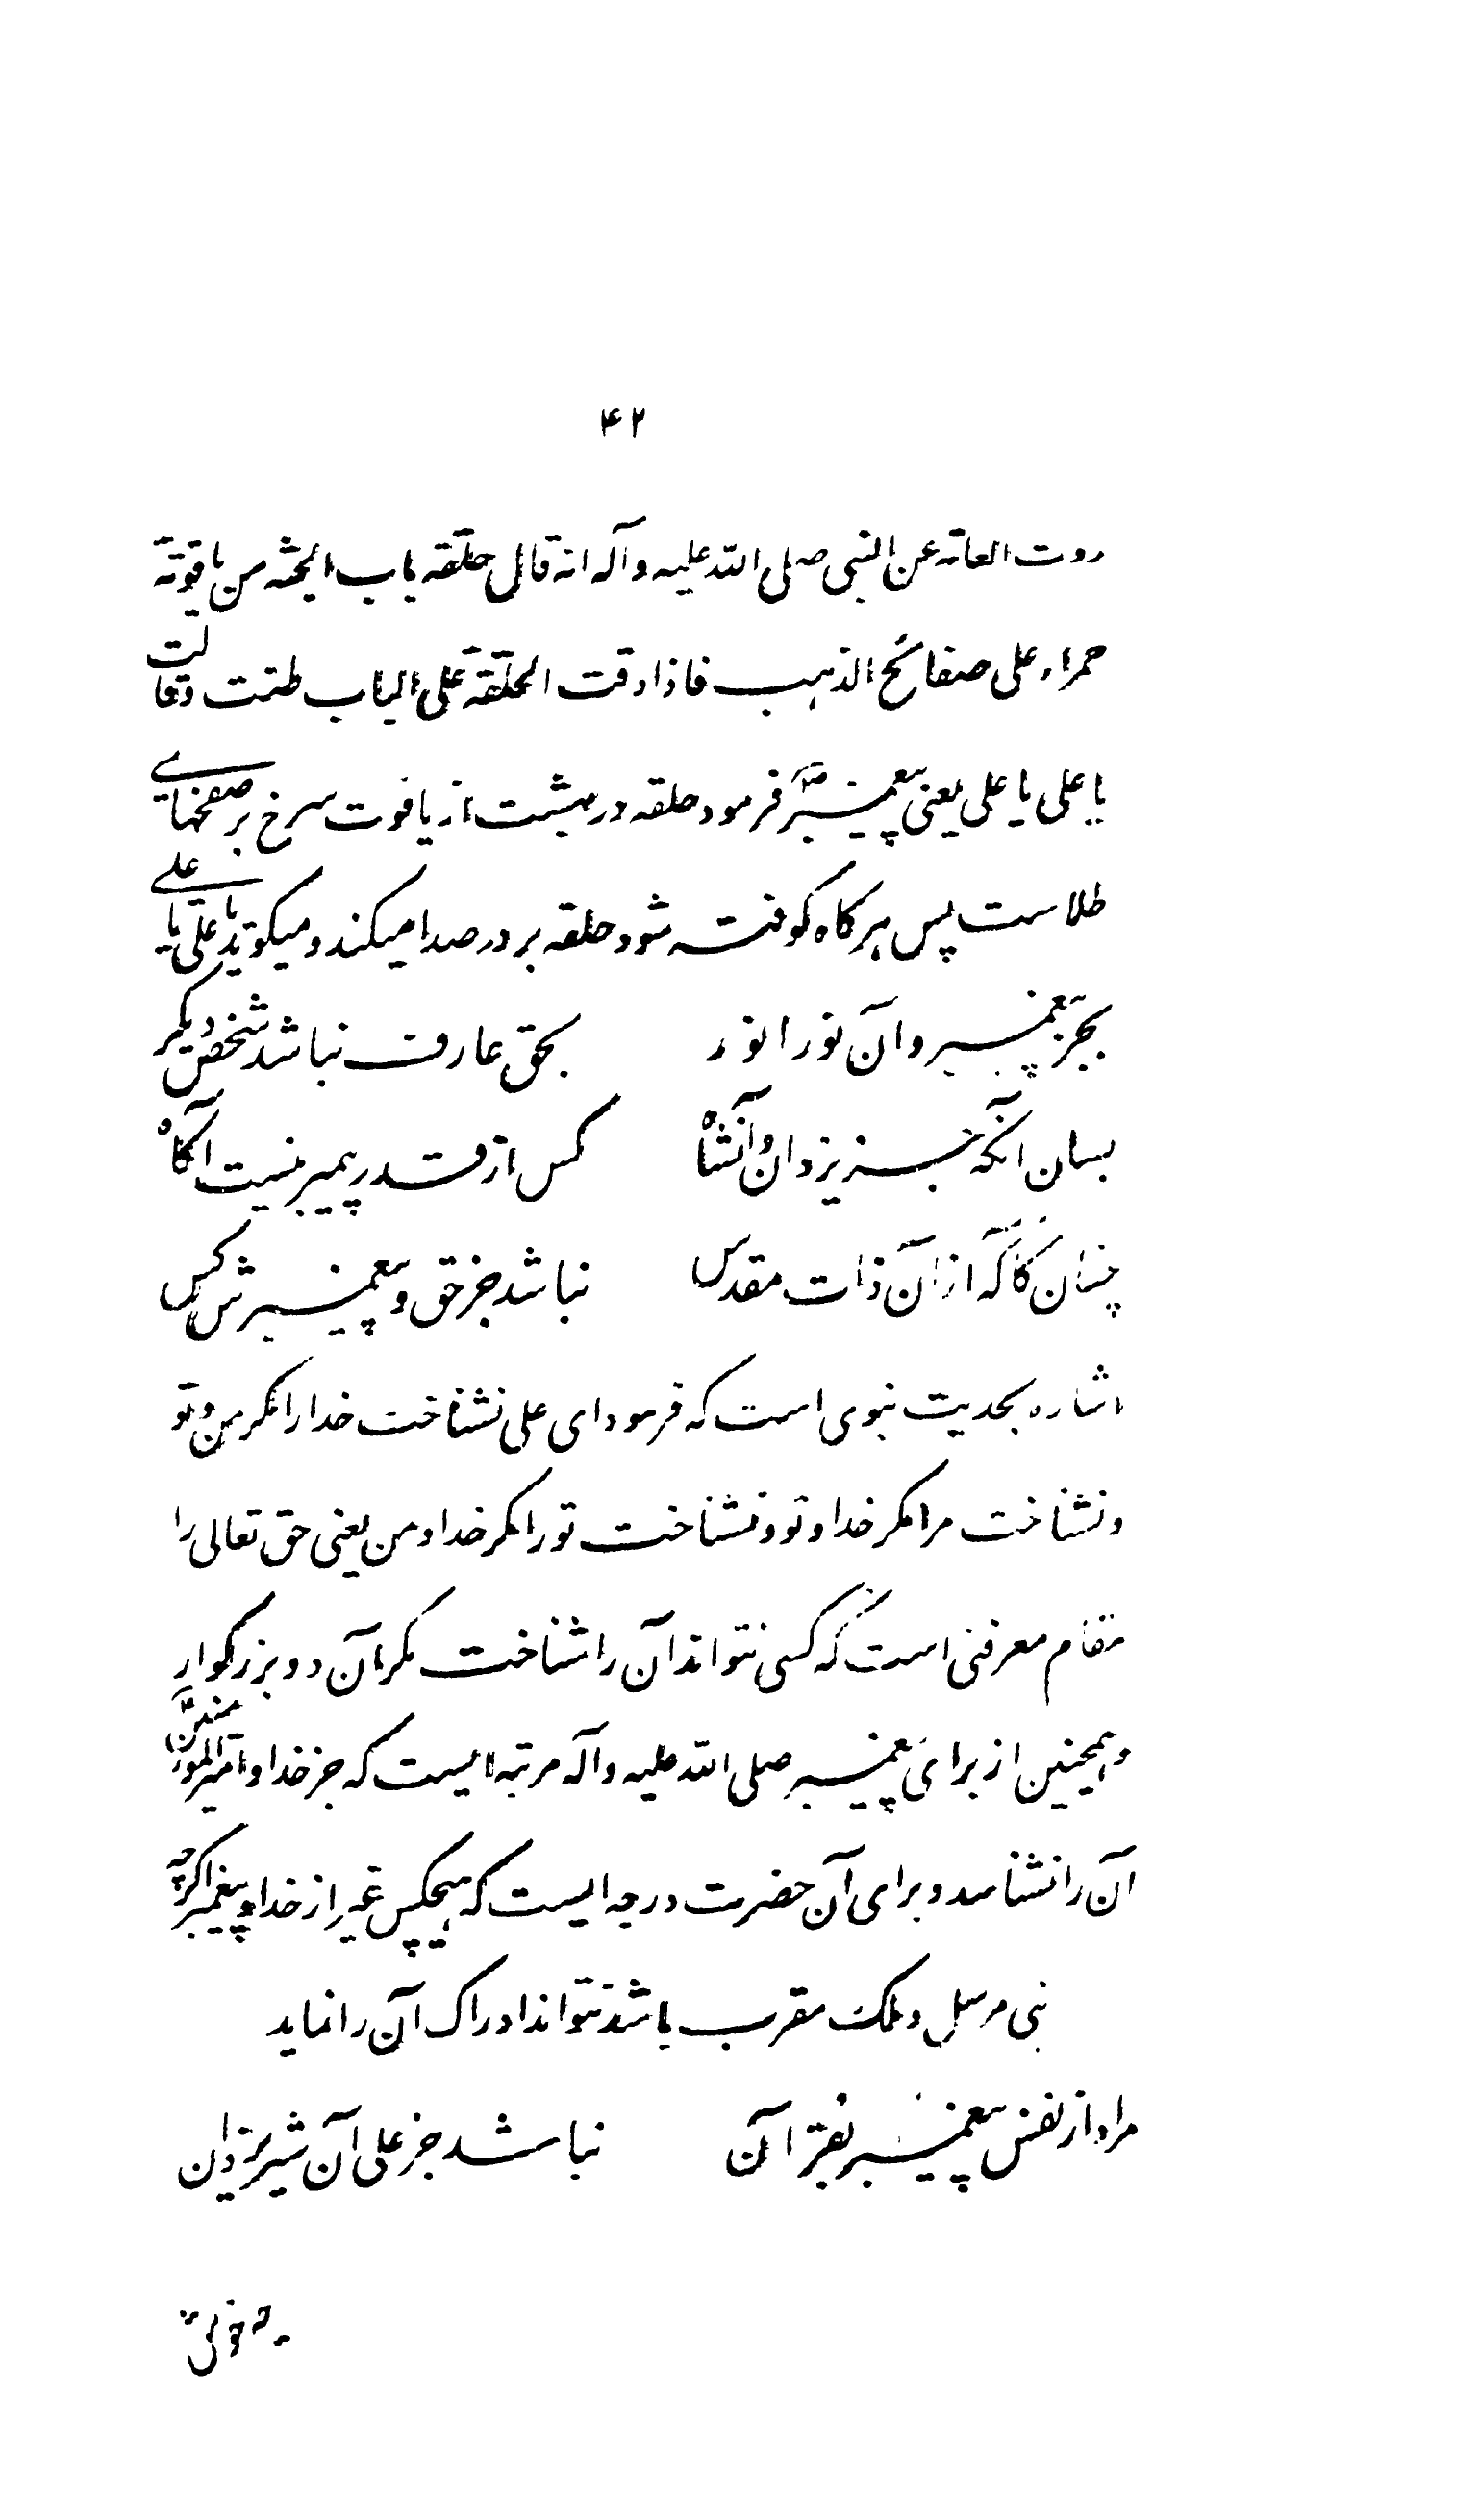 ۴۲
روت العامه عن النبی صلی الله علیه و آله انه قال حلقة باب الجنه من یاقوتة
حمراء علی صفائح الذهب فاذا دقت الحلقة علی الباب طنت و قالت
یا علی یا علی یعنی پیغمبر فرمود حلقه در بهشت از یاقوت سرخ بر صفحهای
طلاست پس هر کاه کوفته شود حلقه بر در صدا میکند و میکوید یا علی یا علی
بجز پیغمبر و آن نور انور بحق عارف نباشد شخص دیکر
بسان آنکه جز یزدان و آنشاه کس از قدر پیمبر نیست آکاه
چنان کاکه از آن ذات مقدس نباشد جز حق و پیغمبرش کس
اشاره بحدیث نبوی است که فرمود ای علی نشناخت خدا را مکر من و تو
و نشناخت مرا مکر خدا و تو و نشناخت تو را مکر خدا و من یعنی حق تعالی را
مقام معرفتی است که کسی نتواند آن را شناخت مکر آن دو بزرکوار
و همچنین از برای پیغمبر صلی الله علیه و آله مرتبه ایست که جز خدا و امیرالمؤمنین
آن را نشناسد و برای آن حضرت درجه ایست که هیچکس غیر از خدا و پیغمبر اکرچه
نبی مرسل و ملک مقرب باشد نتواند ادراک آن را نماید
مراد از نفس پیغمبر بقرآن نباشد جز علی آن شیر یزدان